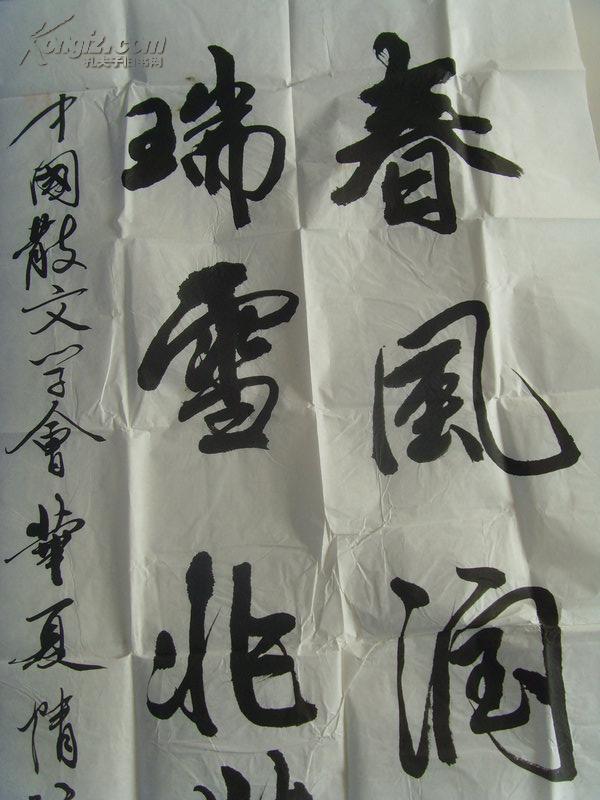 春風潤
瑞雪兆
中國散文学會華夏情
Kongfz.com
孔夫子旧书网